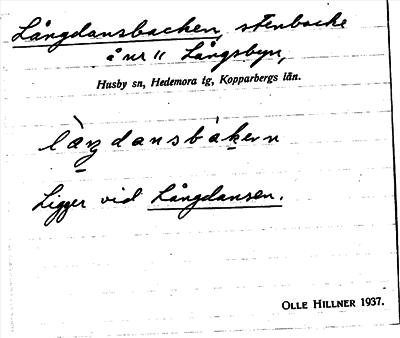 Långdansbacken, stenbacke
å nr 11 Långsbyn,
Husby sn, Hedemora tg, Kopparbergs län.
Ligger vid Långdansen.
OLLE HILLNER 1937.